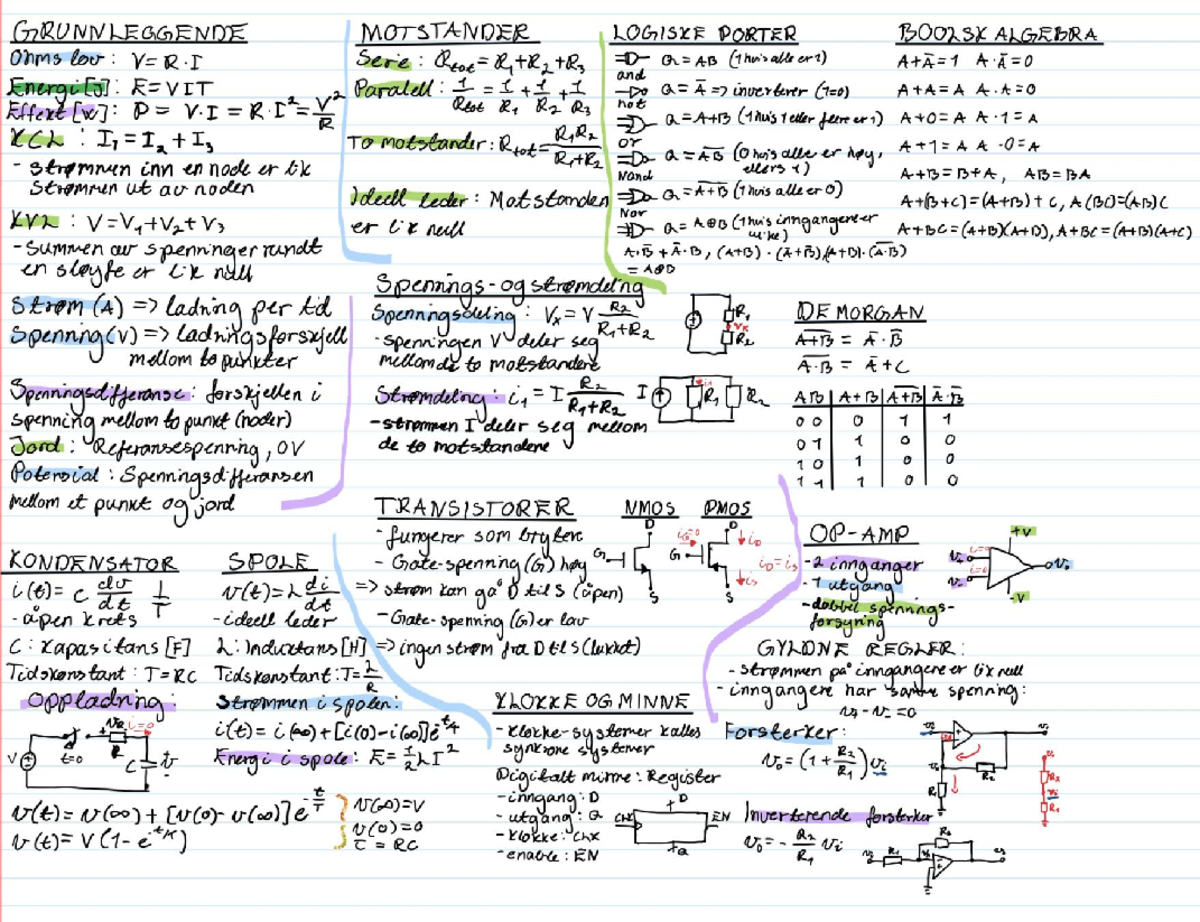 GRUNNLEGGENDE
Ohms lov : V = R · I
Energi [J] : E = VIT
Effekt [W] : P = V · I = R · I² = V²/R
KCL : I₁ = I₂ + I₃
- strømmen inn en node er lik
strømmen ut av noden
KVL : V = V₁ + V₂ + V₃
- summen av spenninger rundt
en sløyfe er lik null
Strøm (A) => ladning per tid
Spenning (V) => ladningsforskjell
mellom to punkter
Spenningsdifferanse : forskjellen i
spenning mellom to punkt (noder)
Jord : Referansespenning, 0V
Potensial : Spenningsdifferansen
mellom et punkt og jord
MOTSTANDER
Serie : Rtot = R₁ + R₂ + R₃
Paralell : 1/Rtot = 1/R₁ + 1/R₂ + 1/R₃
To motstander : Rtot = R₁R₂/R₁+R₂
Ideell leder : Motstanden
er lik null
LOGISKE PORTER
Q = AB (1 hvis alle er 1)
and
Q = A̅ => inverterer (1=0)
not
Q = A+B (1 hvis 1 eller flere er 1)
or
Q = A̅B̅ (0 hvis alle er høy,
ellers 1)
Nand
Q = A̅+̅B̅ (1 hvis alle er 0)
Nor
Q = A⊕B (1 hvis inngangene er
ulike)
A·B̅ + A̅·B, (A+B) · (A̅+B̅), (A+B) · (A̅·̅B̅)
= A⊕B
BOOLSK ALGEBRA
A + A̅ = 1 A · A̅ = 0
A + A = A A · A = 0
A + 0 = A A · 1 = A
A + 1 = A A · 0 = A
A+B = B+A, AB = BA
A+(B+C) = (A+B)+C, A(BC) = (AB)C
A+BC = (A+B)(A+D), A+BC = (A+B)(A+C)
Spennings- og strømdeling
Spenningsdeling : Vx = V R₂/R₁+R₂
- spenningen V deler seg
mellom de to motstandene
R₁
Vx
R₂
Strømdeling : i₁ = I R₂/R₁+R₂
- strømmen I deler seg mellom
de to motstandene
I
i₁
R₁
R₂
DEMORGAN
A̅+̅B̅ = A̅ · B̅
A̅·̅B̅ = A̅ + C
AB A+B A̅+̅B̅ A̅·B̅
0 0 0 1 1
0 1 1 0 0
1 0 1 0 0
1 1 1 0 0
TRANSISTORER
- fungerer som brytere
- Gate-spenning (G) høy
=> strøm kan gå D til S (åpen)
- Gate-spenning (G) er lav
=> ingen strøm fra D til S (lukket)
NMOS PMOS
D
G
S
D
iG=0
G
iD
iD = iS
iS
S
OP-AMP
- 2 innganger
- 1 utgang
- dobbel spennings-
forsyning
+V
i=0
V₊
i=0
V₋
V₀
-V
GYLDNE REGLER :
- strømmen på inngangene er lik null
- inngangene har samme spenning :
V₊ - V₋ = 0
Forsterker :
V₀ = (1 + R₂/R₁) Vi
Inverterende forsterker
V₀ = - R₂/R₁ Vi
KONDENSATOR
i(t) = C dv/dt
- åpen krets
C : Kapasitans [F]
Tidskonstant : T = RC
Oppladning :
V
t=0
+ VR -
i=0
R
C
v
v(t) = v(∞) + [v(0) - v(∞)] e^-t/T
v(t) = V(1 - e^-t/κ)
v(∞) = V
v(0) = 0
τ = RC
SPOLE
v(t) = L di/dt
- ideell leder
L : Induktans [H]
Tidskonstant : T = L/R
Strømmen i spolen :
i(t) = i(∞) + [i(0) - i(∞)] e^-t/τ
Energi i spole : E = 1/2 LI²
KLOKKE OG MINNE
- Klokke-systemer kalles
synkrone systemer
Digitalt minne : Register
- inngang : D
- utgang : Q
- klokke : Clk
- enable : EN
D
Clk
EN
Q